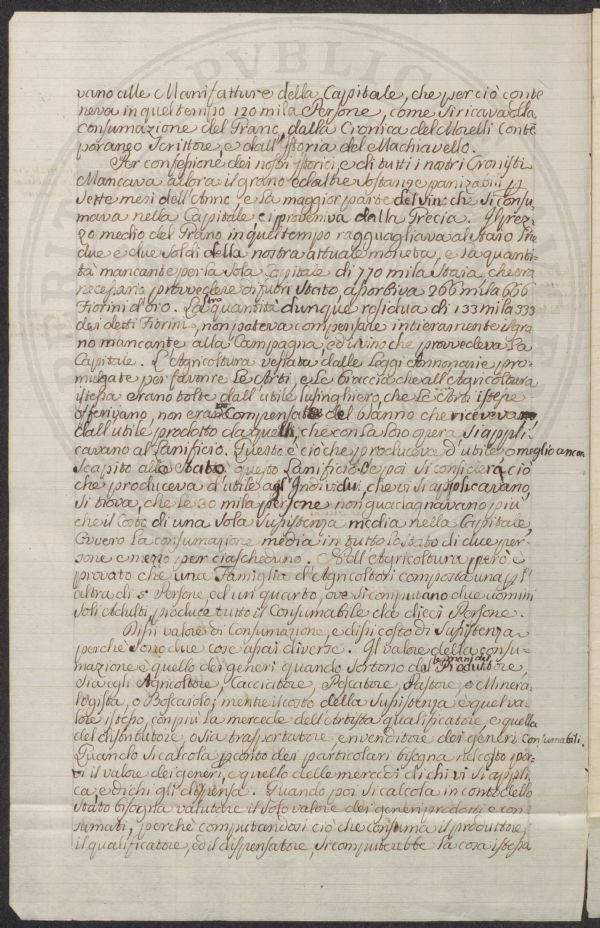 vano alle Manifatture della Capitale, che perciò conte
neva in quel tempo 120 mila Persone, come si ricava dalla
consumazione del Grano, dalla Cronica del Morelli Conte
poraneo Scrittore, e dall'Istoria del Machiavello.
Per confessione dei nostri Istorici, e di tutti i nostri Cronisti
Mancava allora il grano ed altre sostanze panizabili p
sette mesi dell'Anno, e la maggior parte del vino che si consu-
mava nella Capitale ci proveniva dalla Grecia. Il prez-
zo medio del Grano in quel tempo ragguagliava al Staio Lire
due e due Soldi della nostra attuale moneta, e la quanti-
tà mancante per la sola Capitale di 770 mila Staia, che era
necessario provvedere di fuori Stato assorbiva 266 mila 666
Fiorini d'oro. La quantità dunque residua di 133 mila 333
dei detti Fiorini, non poteva compensare intieramente il gra
no mancante alla Campagna, ed il vino che provvedeva la
Capitale. L'Agricoltura vessata dalle Leggi Annonarie pro-
mulgate per favorire le Arti, e le braccia che all'Agricoltura
istessa erano tolte dall'utile lusinghiero, che le Arti istesse
offerivano, non erano compensate del danno che ricevevano
dall'utile prodotto da quelli, che con la loro opera si appli-
cavano al Lanificio. Questo è ciò che produceva d'utile o meglio ancora
Scapito allo Stato questo Lanificio. Se poi si considera ciò
che produceva d'utile agl'Individui che vi si applicavano,
si trova, che le 30 mila persone non guadagnavano più
che il Costo di una sola sussistenza media nella Capitale,
Ovvero la consumazione media in tutto lo stato di due per-
sone e mezzo per ciascheduno. Nell'Agricoltura però è
provato che una Famiglia d'Agricoltori composta una p
altra di 5 Persone, ed un quarto, ove si computano due uomini
soli Adulti, produce tutto il Consumabile da dieci Persone.
Dissi valore di Consumazione, e dissi costo di Sussistenza
perchè sono due cose assai diverse. Il valore della consu-
mazione è quello dei generi quando sortono dal Produttore,
sia egli Agricoltore, Cacciatore, Pescatore, Pastore, o Minera-
logista, o Boscaiolo; mentre il costo della sussistenza è quel va-
lore istesso, con più la mercede dell'Artista qualificatore, e quella
del distributore, o sia trasportatore, e venditore dei generi Consumabili.
Quando si calcola p conto dei particolari bisogna
vi il valore dei generi, e quello delle mercedi di chi vi si appli
ca, e di chi gli dispensa. Quando poi si calcola in conto dello
Stato bisogna valutare il solo valore dei generi prodotti e con-
sumati, perchè computandosi ciò che consuma il produttore,
il qualificatore, ed il dispensatore, si computerebbe la cosa istessa